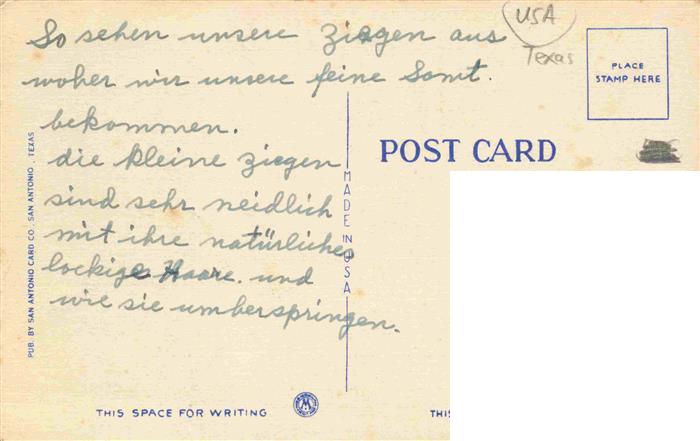 So sehen unsere Ziegen aus
woher wir unsere feine Samt.
bekommen.
die kleine Ziegen
sind sehr neidlich
mit ihre natürliches
lockiges Haare. und
wie sie umberspringen.
USA
Texas
PLACE
STAMP HERE
POST CARD
MADE IN USA
PUB. BY SAN ANTONIO CARD CO. SAN ANTONIO, TEXAS
THIS SPACE FOR WRITING